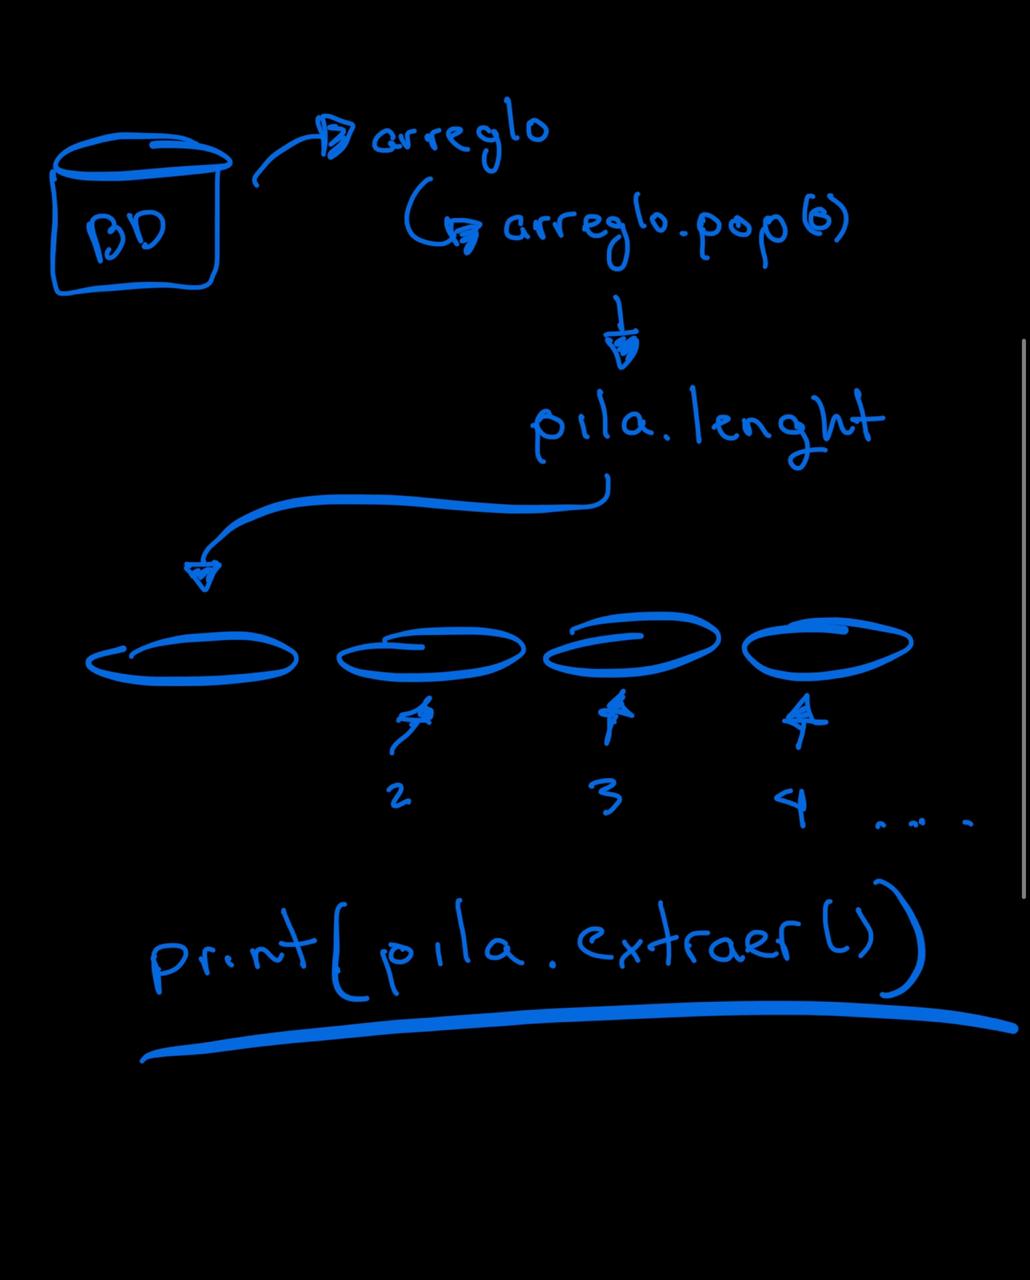 arreglo
BD
arreglo.pop(0)
pila.lenght
2 3 4 ....
print(pila.extraer())